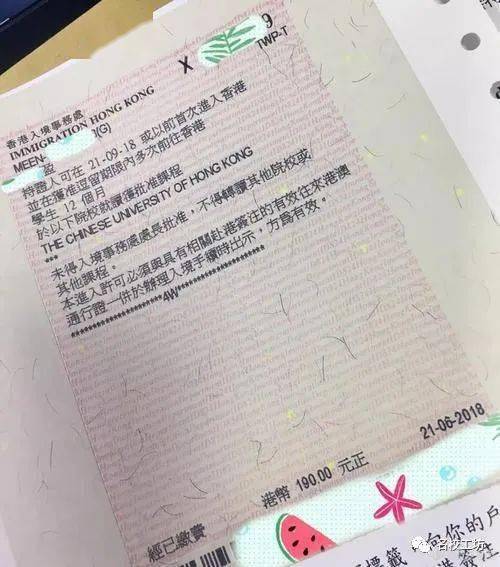 9
X
TWP-T
香港入境事務處
IMMIGRATION HONG KONG
MEEN-
(G)
盈
持證人可在 21-09-18 或以前首次進入香港
並在獲准逗留期限內多次前往香港
學生 12 個月
於以下院校就讀獲批准課程
THE CHINESE UNIVERSITY OF HONG KONG
***
未得入境事務處處長批准，不得轉讀其他院校或
其他課程。
本進入許可必須與具有相關赴港簽注的有效往來港澳
通行證一併於辦理入境手續時出示，方為有效。
********************4W********************
21-06-2018
港幣 190.00 元正
經已繳費
標籤
向你的戶
港簽注
名校工坊